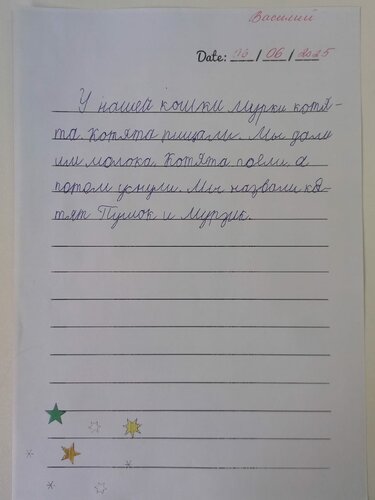 Василий
Date: 06 / 06 / 2025
У нашей кошки Мурки котя-
та. Котята пищали. Мы дали
им молока. Котята поели а
потом уснули. Мы назвали ко-
тят Пушок и Мурзик.